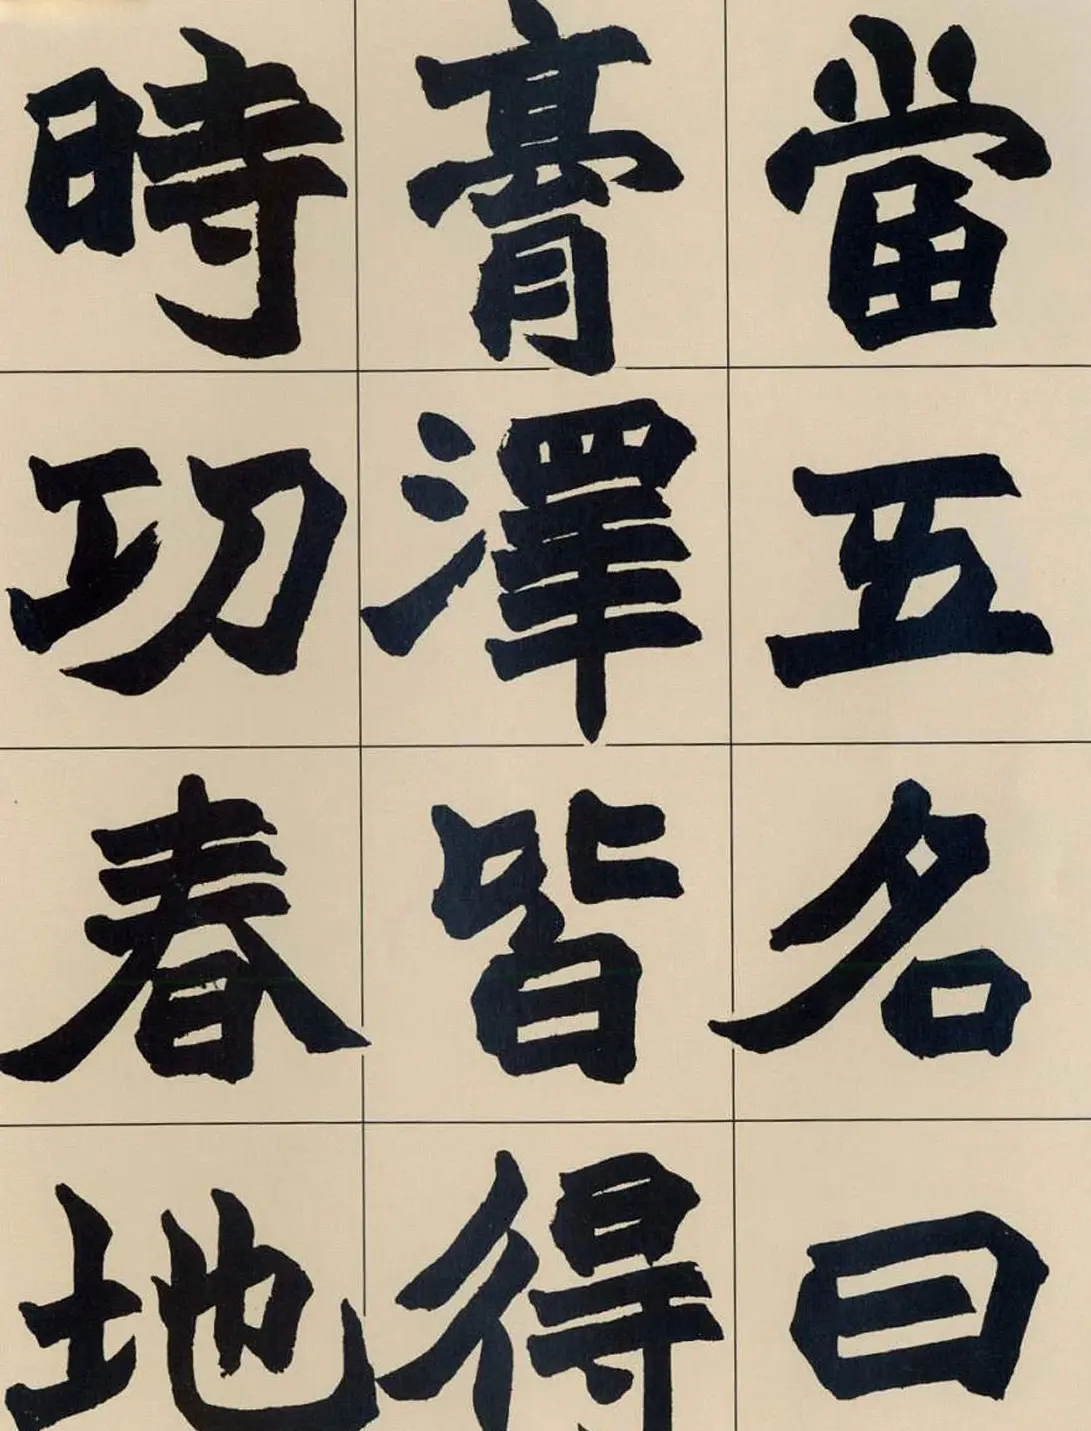 當五名曰
膏澤皆得
時功春地